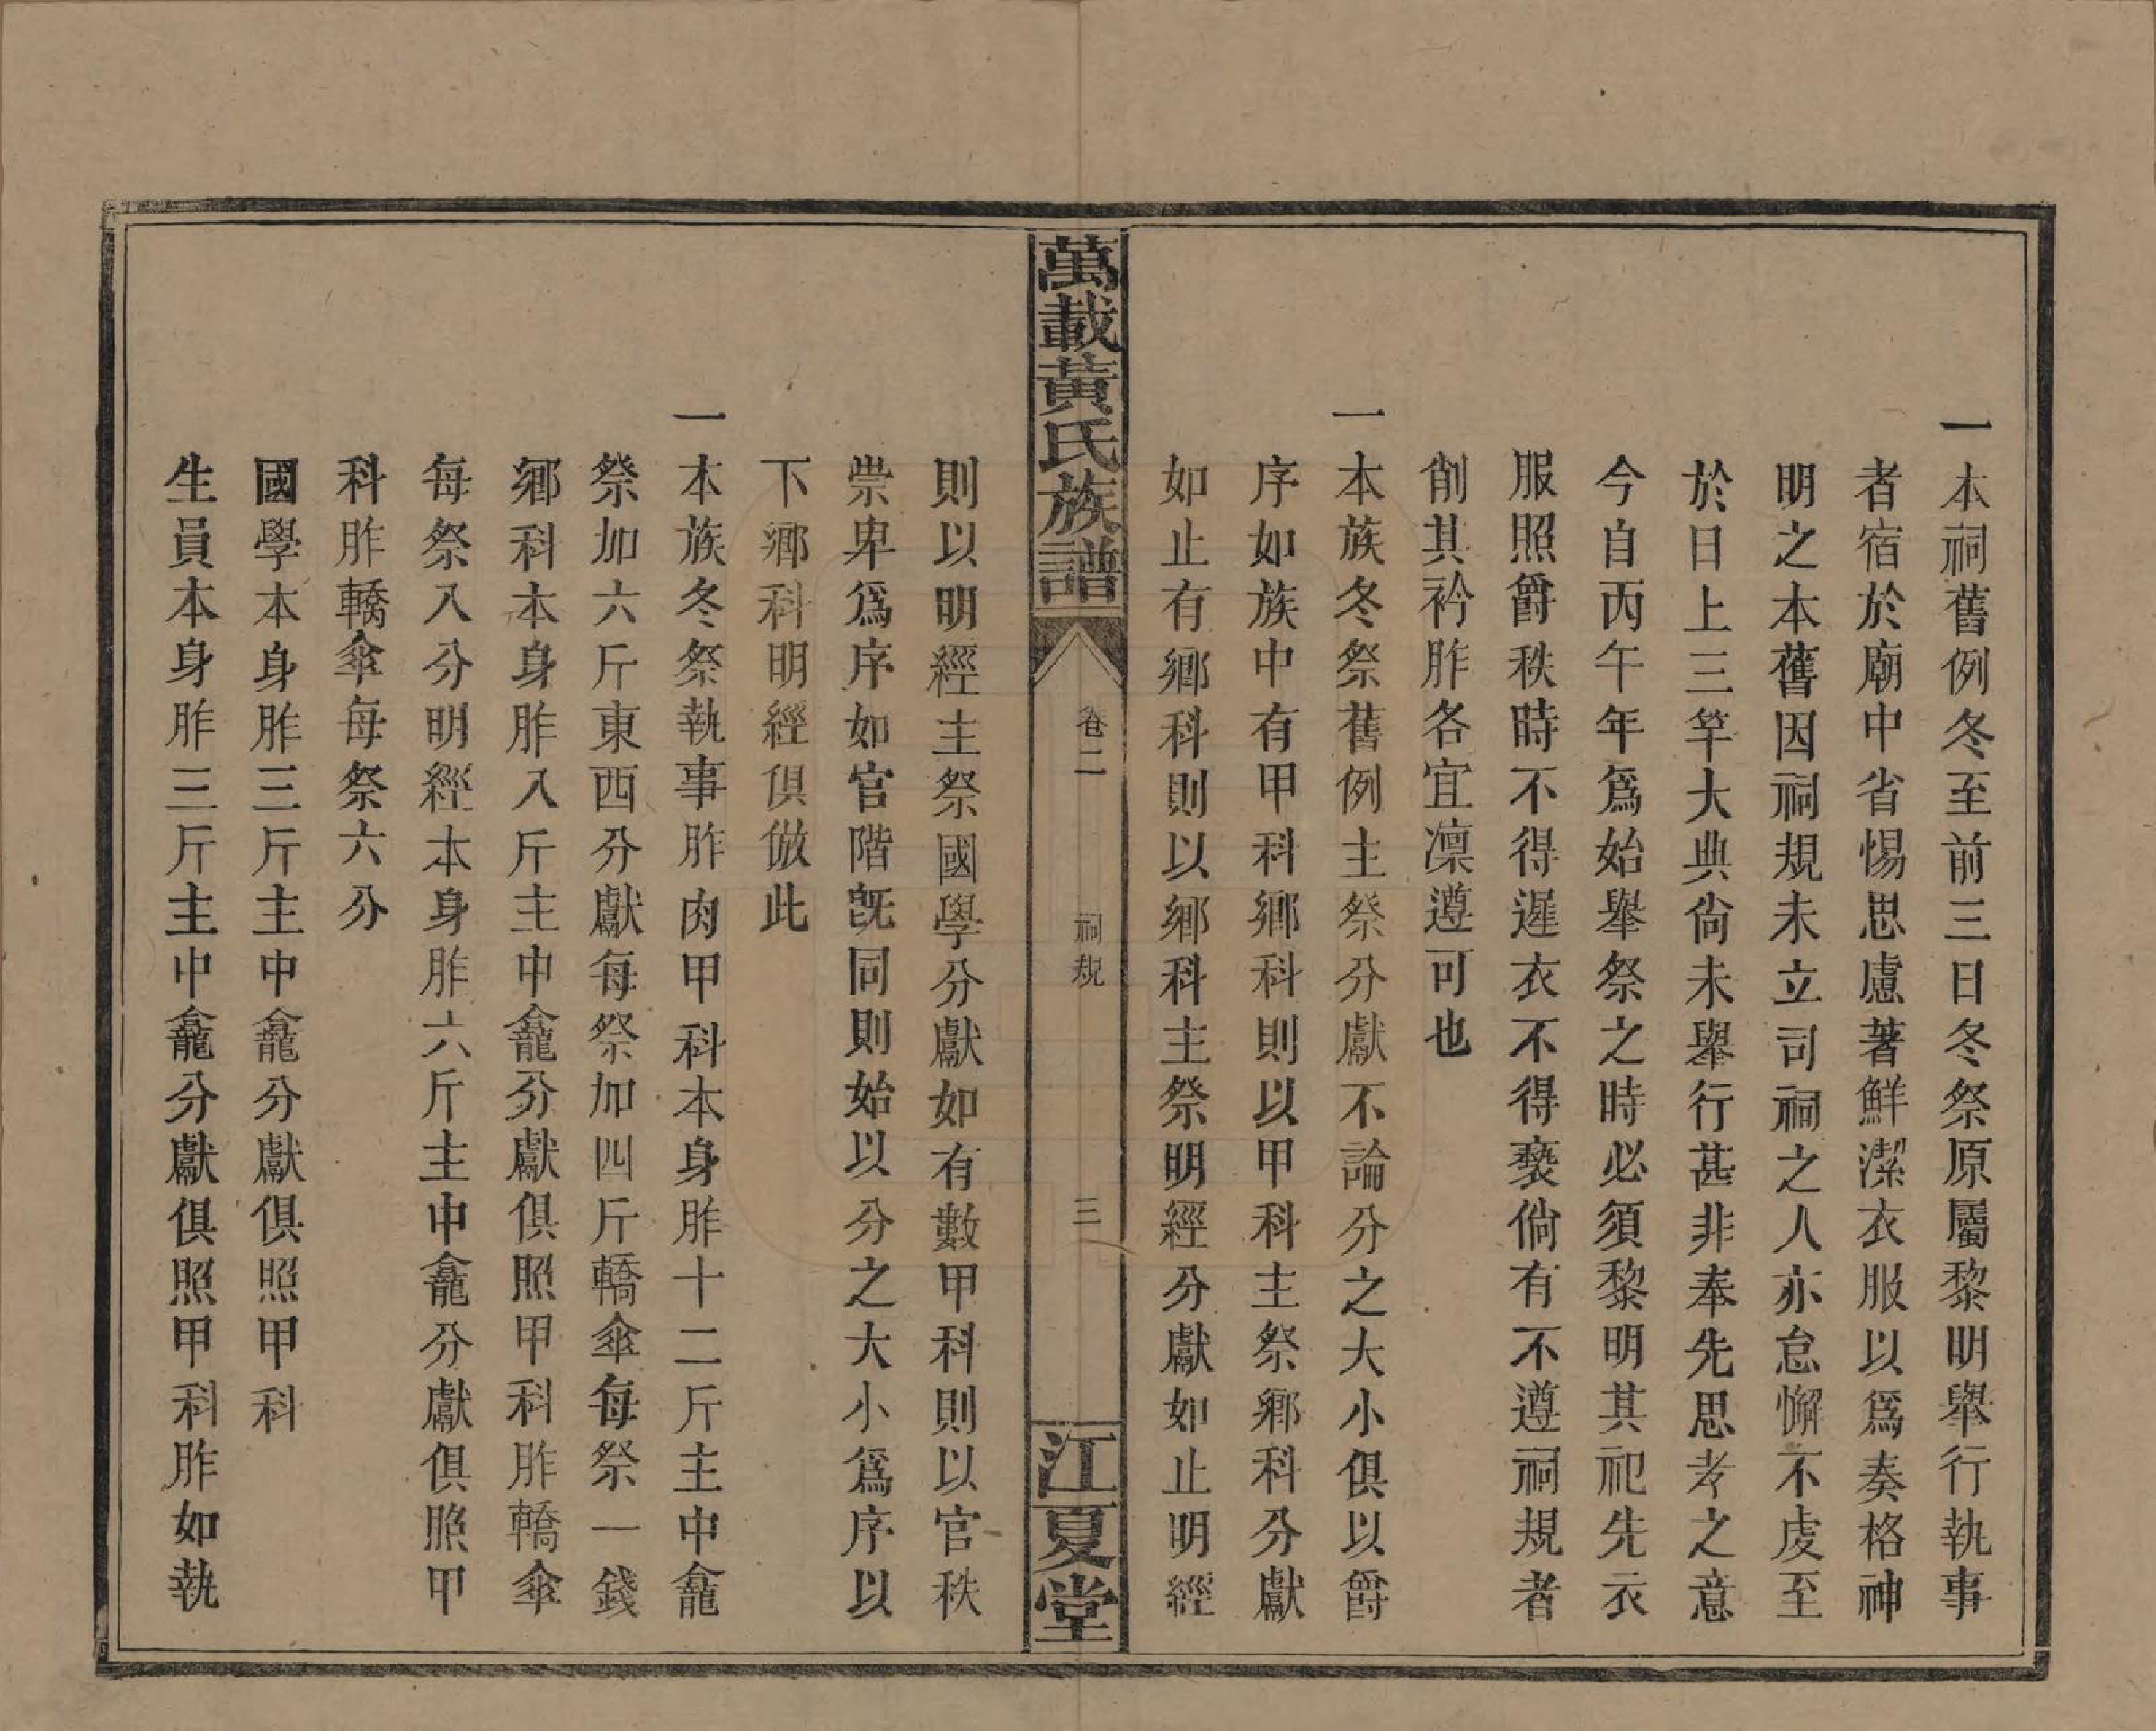 一本祠舊例冬至前三日冬祭原屬黎明舉行執事
者宿於廟中省惕思慮著鮮潔衣服以爲奏格神
明之本舊因祠規未立司祠之人亦怠懈不虔至
於日上三竿大典尙未舉行甚非奉先思孝之意
今自丙午年爲始舉祭之時必須黎明其祀先衣
服照爵秩時不得遲衣不得褻倘有不遵祠規者
削其衿胙各宜凜遵可也
一本族冬祭舊例主祭分獻不論分之大小俱以爵
序如族中有甲科鄉科則以甲科主祭鄉科分獻
如止有鄉科則以鄉科主祭明經分獻如止明經
萬載黃氏族譜
卷二
祠規
三
江夏堂
則以明經主祭國學分獻如有數甲科則以官秩
崇卑爲序如官階旣同則始以分之大小爲序以
下鄉科明經俱倣此
一本族冬祭執事胙肉甲科本身胙十二斤主中龕
祭加六斤東西分獻每祭加四斤轎傘每祭一錢
鄉科本身胙八斤主中龕分獻俱照甲科胙轎傘
每祭八分明經本身胙六斤主中龕分獻俱照甲
科胙轎傘每祭六分
國學本身胙三斤主中龕分獻俱照甲科
生員本身胙三斤主中龕分獻俱照甲科胙如執